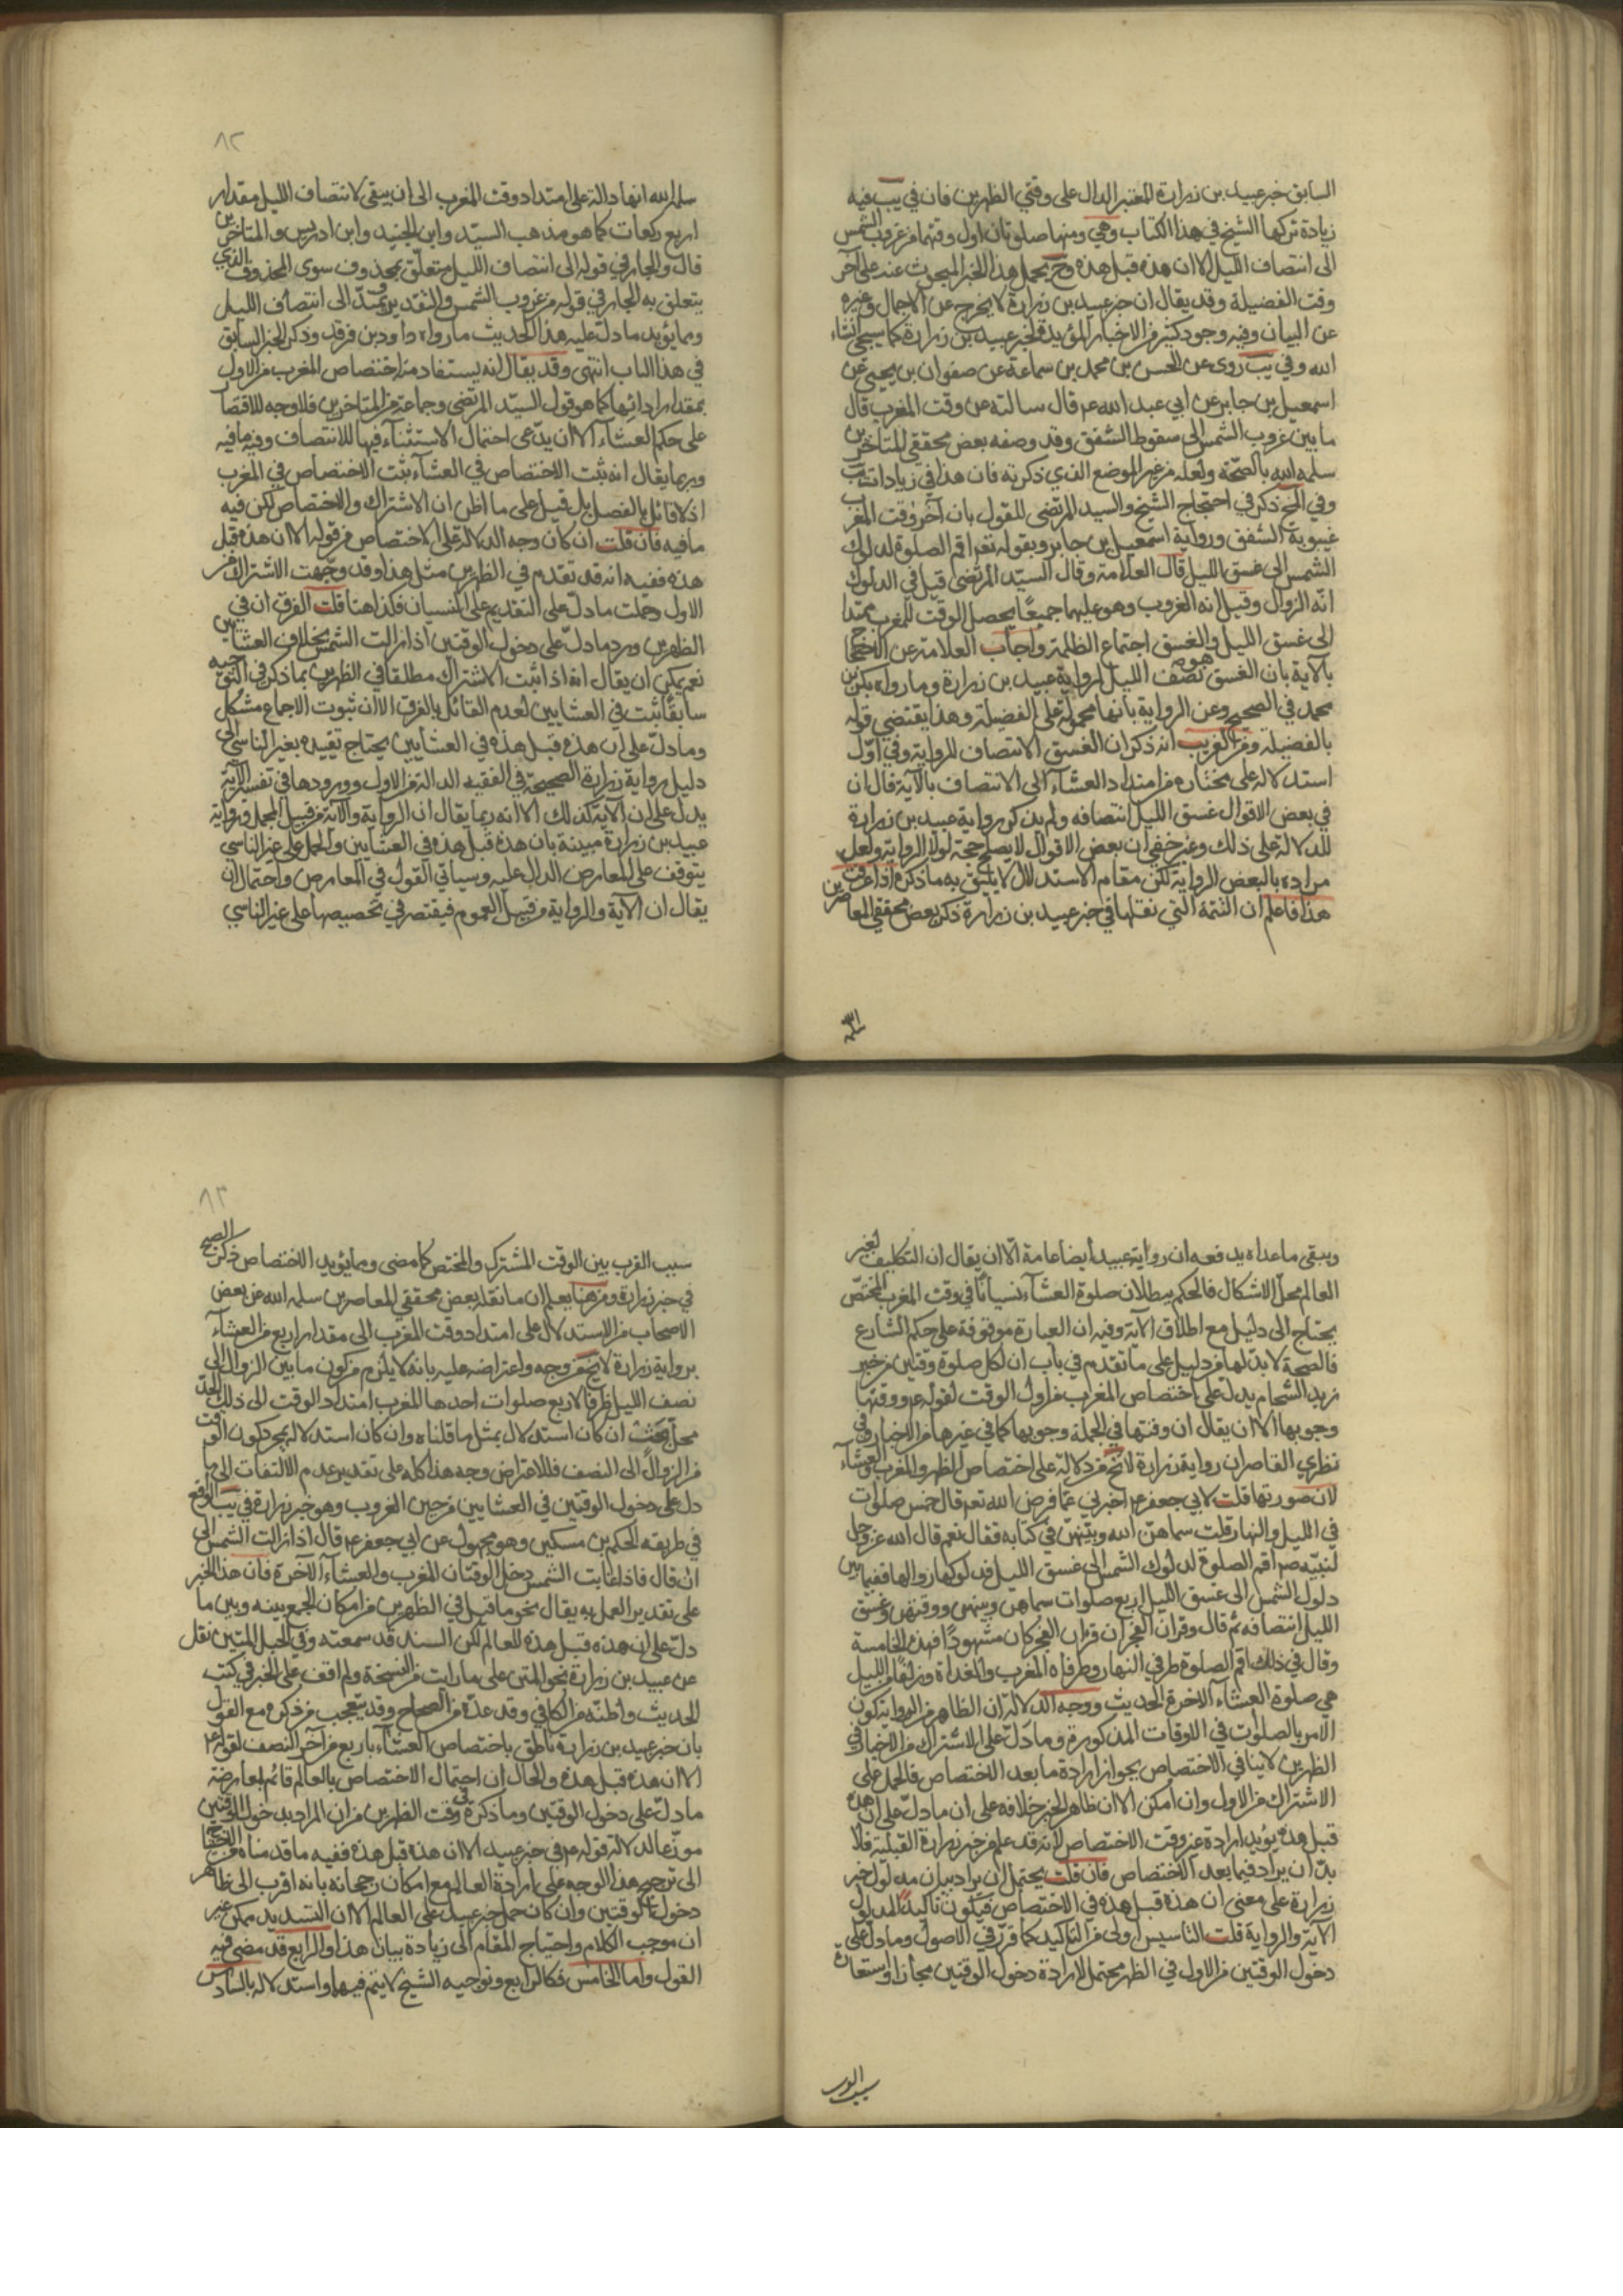 السابق خبر عبيد بن زرارة المعتبر الدال على وقتي الظهرين فان في يب فيه
زيادة تركها الشيخ في هذا الكتاب وهي ومنها صلوتان اول وقتهما من غروب الشمس
الى انتصاف الليل الا ان هذه قبل هذه وح يحمل هذا الخبر المبحوث عنه على آخر
وقت الفضيلة وقد يقال ان خبر عبيد بن زرارة لا يخرج عن الاجمال وغيره
عن البيان وفيه وجود كثير من الاخبار المؤيدة لخبر عبيد بن زرارة كما سيجئ انشاء
الله وفي يب روى عن الحسن بن محمد بن سماعة عن صفوان بن يحيى عن
اسمعيل بن جابر عن ابي عبد الله ع قال سالته عن وقت المغرب قال
ما بين غروب الشمس الى سقوط الشفق وقد وصفه بعض محققي المتاخرين
سلمه الله بالصحة ولعله من غير الموضع الذي ذكرته فان هذا في زيادات يب
وفي المخ ذكر في احتجاج الشيخ والسيد المرتضى للقول بان آخر وقت المغرب
غيبوبة الشفق ورواية اسمعيل بن جابر وبقوله تع اقم الصلوة لدلوك
الشمس الى غسق الليل قال العلامة وقال السيد المرتضى قيل في الدلوك
انه الزوال وقيل انه الغروب وهو عليهما جميعا يحصل الوقت للمغرب ممتدا
الى غسق الليل والغسق اجتماع الظلمة واجاب العلامة عن الاحتجاج
بالاية بان الغسق هو نصف الليل لرواية عبيد بن زرارة وما رواه بكر بن
محمد في الصحيح وعن الرواية بانها محمولة على الفضيلة وهذا يقتضي قوله
بالفضيلة ومن الغريب انه ذكر ان الغسق الانتصاف للرواية وفي اول
استدلاله على مختاره من امتداد العشاء الى الانتصاف بالآية قال ان
في بعض الاقوال غسق الليل انتصافه ولم يذكر رواية عبيد بن زرارة
للدلالة على ذلك وغير خفي ان بعض الاقوال لا يصلح حجة لولا الرواية ولعل
مراده بالبعض الرواية لكن مقام الاستدلال لا يليق به ما ذكره اذا عرفت
هذا فاعلم ان التتمة التي نقلها في خبر عبيد بن زرارة ذكر بعض محققي المعاصرين
٨٢
سلمه الله انها دالة على امتداد وقت المغرب الى ان يبقى لانتصاف الليل مقدار
اربع ركعات كما هو مذهب السيد وابن الجنيد وابن ادريس والمتاخرين
قال والجار في قوله الى انتصاف الليل متعلق بمحذوف سوى المحذوف الذي
يتعلق به الجار في قوله من غروب الشمس والتقدير ويمتد الى انتصاف الليل
ومما يؤيد ما دل عليه هذا الحديث ما رواه داود بن فرقد وذكر الخبر السابق
في هذا الباب انتهى وقد يقال انه يستفاد منه اختصاص المغرب من الاول
بمقدار ادائها كما هو قول السيد المرتضى وجماعة من المتاخرين فلا وجه للاقتصا
على حكم العشاء الا ان يدعى احتمال الاستثناء فيها للانتصاف وفيه ما فيه
وربما يقال انه ثبت الاختصاص في العشاء ثبت الاختصاص في المغرب
اذ لا قائل بالفصل بل قيل على ما اظن ان الاشتراك والاختصاص لكن فيه
ما فيه فان قلت ان كان وجه الدلالة على الاختصاص من قوله الا ان هذه قبل
هذه ففيه انه قد تقدم في الظهرين مثل هذا وقد وجهت الاشتراك من
الاول وحملت ما دل على التقديم على النسيان فكذا هنا قلت الفرق ان في
الظهرين ورد ما دل على دخول الوقتين اذا زالت الشمس بخلاف العشائين
نعم يمكن ان يقال انه اذا ثبت الاشتراك مطلقا في الظهرين بما ذكر في التوجيه
سابقا ثبت في العشايين لعدم القائل بالفرق الا ان ثبوت الاجماع مشكل
وما دل على ان هذه قبل هذه في العشايين يحتاج تقييده بغير الناسي الى
دليل برواية زرارة الصحيحة في الفقيه الدالة من الاول وورودها في تفسير الآية
يدل على ان الآية كذلك الا انه ربما يقال ان الرواية والآية من قبيل المجمل ورواية
عبيد بن زرارة مبينة بان هذه قبل هذه في العشايين والحمل على غير الناسي
يتوقف على المعارض الدال عليه وسياتي القول في المعارض واحتمال ان
يقال ان الآية والرواية من قبيل العموم فيقتصر في تخصيصها على غير الناسي
ويبقى ما عداه يدفعه ان رواية عبيد ايضا عامة الا ان يقال ان التكليف لغير
العالم محل الاشكال فالحكم ببطلان صلوة العشاء نسيانا في وقت المغرب المختص
يحتاج الى دليل مع اطلاق الآية وفيه ان العبارة موقوفة على حكم الشارع
فالصحة لا بد لها من دليل على ما تقدم في باب ان لكل صلوة وقتين من خبر
زيد الشحام يدل على اختصاص المغرب من اول الوقت لقوله ع ووقتها
وجوبها الا ان يقال ان وقتها في الجملة وجوبها كما في غيرها من الاخبار وفي
نظري القاصر ان رواية زرارة لا تخ من دلالة على اختصاص الظهر والمغرب والعشاء
لان صورتها قلت لابي جعفر ع اخبرني عما فرض الله تع قال خمس صلوات
في الليل والنهار قلت سماهن الله وبينهن في كتابه فقال نعم قال الله عز وجل
لنبيه ص اقم الصلوة لدلوك الشمس الى غسق الليل فدلوكها زوالها ففيما بين
دلوك الشمس الى غسق الليل اربع صلوات سماهن وبينهن ووقتهن وغسق
الليل انتصافه ثم قال وقرآن الفجر ان قرآن الفجر كان مشهودا فهذه الخامسة
وقال في ذلك اقم الصلوة طرفي النهار وطرفاه المغرب والغداة وزلفا من الليل
هي صلوة العشاء الآخرة الحديث ووجه الدلالة ان الظاهر من الرواية كون
الامر بالصلوات في الاوقات المذكورة وما دل على الاشتراك من الاخبار في
الظهرين لا ينافي الاختصاص بجواز ارادة ما بعد الاختصاص فالحمل على
الاشتراك من الاول وان امكن الا ان ظاهر الخبر خلافه على ان ما دل على ان هذه
قبل هذه يؤيد ارادة غير وقت الاختصاص لانه قد علم من خبر زرارة القبلية فلا
بد ان يراد فيما بعد الاختصاص فان قلت يحتمل ان يراد بيان مدلول خبر
زرارة على معنى ان هذه قبل هذه في الاختصاص فيكون تاكيدا لمدلول
الآية والرواية قلت التاسيس اولى من التاكيد كما قرر في الاصول وما دل على
دخول الوقتين من الاول في الظهر محتمل لارادة دخول الوقتين مجازا واستعارة
٨٣
سبب القرب بين الوقت المشترك والمختص كما مضى ومما يؤيد الاختصاص ذكر الصبح
في خبر زرارة ومن هنا يعلم ان ما نقله بعض محققي المعاصرين سلمه الله عن بعض
الاصحاب من الاستدلال على امتداد وقت المغرب الى مقدار اربع من العشاء
برواية زرارة لا يخ من وجه واعتراضه عليه بانه لا يلزم من كون ما بين الزوال الى
نصف الليل ظرفا لاربع صلوات احدها المغرب امتداد الوقت الى ذلك الحد
محل بحث ان كان استدلال بمثل ما قلناه وان كان استدلاله بمجرد كون الوقت
من الزوال الى النصف فللاعتراض وجه هذا كله على تقدير عدم الالتفات الى ما
دل على دخول الوقتين في العشايين من حين الغروب وهو خبر زرارة في يب الواقع
في طريقه الحكم بن مسكين وهو مجهول عن ابي جعفر ع قال اذا زالت الشمس الى
ان قال فاذا غابت الشمس دخل الوقتان المغرب والعشاء الآخرة فان هذا الخبر
على تقدير العمل به يقال نحو ما قيل في الظهرين من امكان الجمع بينه وبين ما
دل على ان هذه قبل هذه للعالم لكن السند قد سمعته وفي الحبل المتين نقل
عن عبيد بن زرارة نحو المتن على ما رايت من النسخة ولم اقف على الخبر في كتب
الحديث واظنه من الكافي وقد عده من الصحاح وقد يتعجب من ذكره مع القول
بان خبر عبيد بن زرارة ناطق باختصاص العشاء باربع من آخر النصف لقوله ع
الا ان هذه قبل هذه والحال ان احتمال الاختصاص بالعالم قائم لمعارضة
ما دل على دخول الوقتين وما ذكره في وقت الظهرين من ان المراد بدخول الوقتين
موزعا لدلالة قوله ع في خبر عبيد الا ان هذه قبل هذه ففيه ما قدمناه
الى توجيه هذا الوجه على ارادة العالم مع امكان رجحانه بانه اقرب الى ظاهر
دخول الوقتين وان كان حمل خبر عبيد على العالم الا ان التسديد ممكن غير
ان موجب الكلام واحتياج المقام الى زيادة بيان هذا والرابع قد مضى فيه
القول واما الخامس فكالرابع وتوجيه الشيخ لا يتم فيهما واستدلاله بالسادس